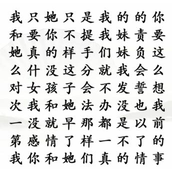 我只她只是我的的你
和要你不提我妹责要
她真的样手们妹负这
么什没这分就我会么
对女孩子会不发誓想
次我和她法办没也我
一没就早那都是以前
第感情了样一不了的
我你和她们真的情事